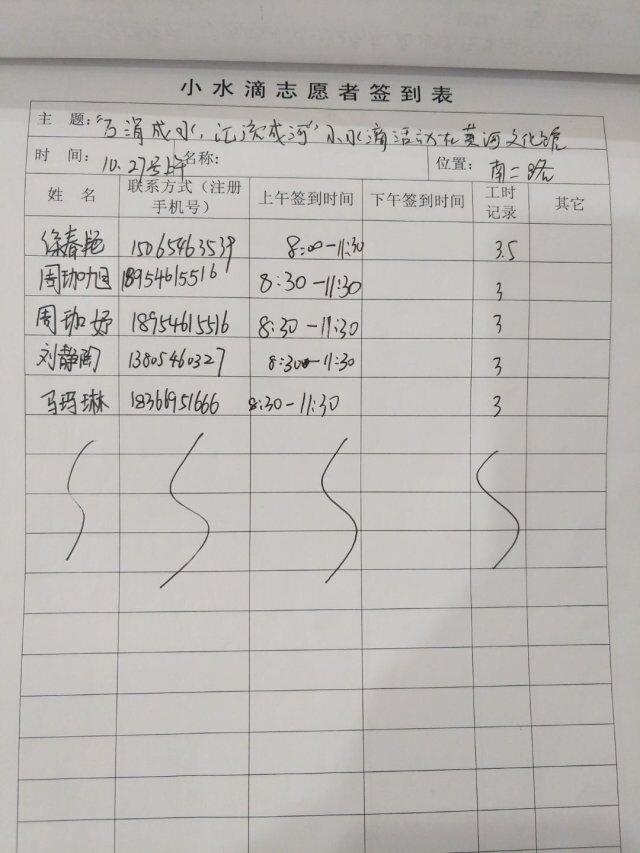 小水滴志愿者签到表
主 题：“万涓成水，汇流成河”小水滴活动在黄河文化馆
时 间：10.27号上午 名称： 位置：南二路
姓 名 联系方式（注册手机号） 上午签到时间 下午签到时间 工时记录 其它
徐春艳 15065463539 8:00-11:30 3.5
周珈旭 18954615516 8:30-11:30 3
周珈妤 18954615516 8:30-11:30 3
刘静陶 13805460327 8:30-11:30 3
马玛琳 18366951666 8:30-11:30 3